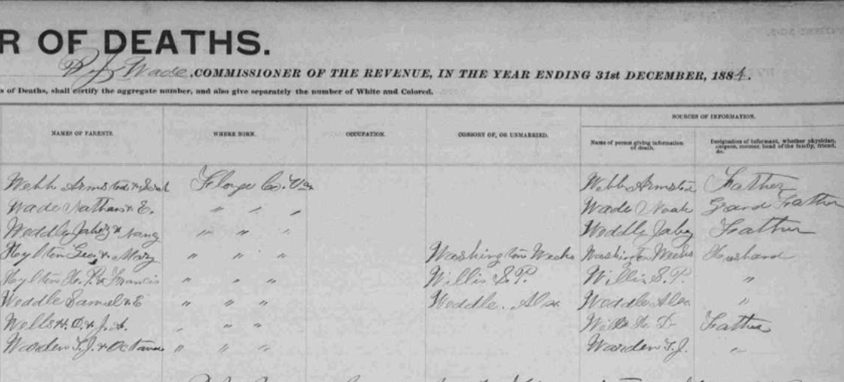 R OF DEATHS.
Wade, COMMISSIONER OF THE REVENUE, IN THE YEAR ENDING 31st DECEMBER, 1884.
s of Deaths, shall certify the aggregate number, and also give separately the number of White and Colored.
SOURCES OF INFORMATION.
NAMES OF PARENTS. WHERE BORN. OCCUPATION. CONSORT OF, OR UNMARRIED. Name of person giving information of death. Designation of informant, whether physician, surgeon, coroner, head of the family, friend, &c.
Webb Armsted & Floyd Co. Va Webb Armsted Father
Wade Nathan & E. " " " Wade Noah Grand Father
Weddly Jabez & Nancy " " " Weddly Jabez Father
Hylton Geo. & Mary " " " Washington Weeks Washington Weeks Husband
Hylton H. P. & Francis " " " Willis S. P. Willis S. P. "
Weddle Samuel & E " " " Weddle Alex Weddle Alex "
Wells H. D. & J. A. " " " Wells H. D Father
Warden T. J. & Octavia " " " Warden T. J. "